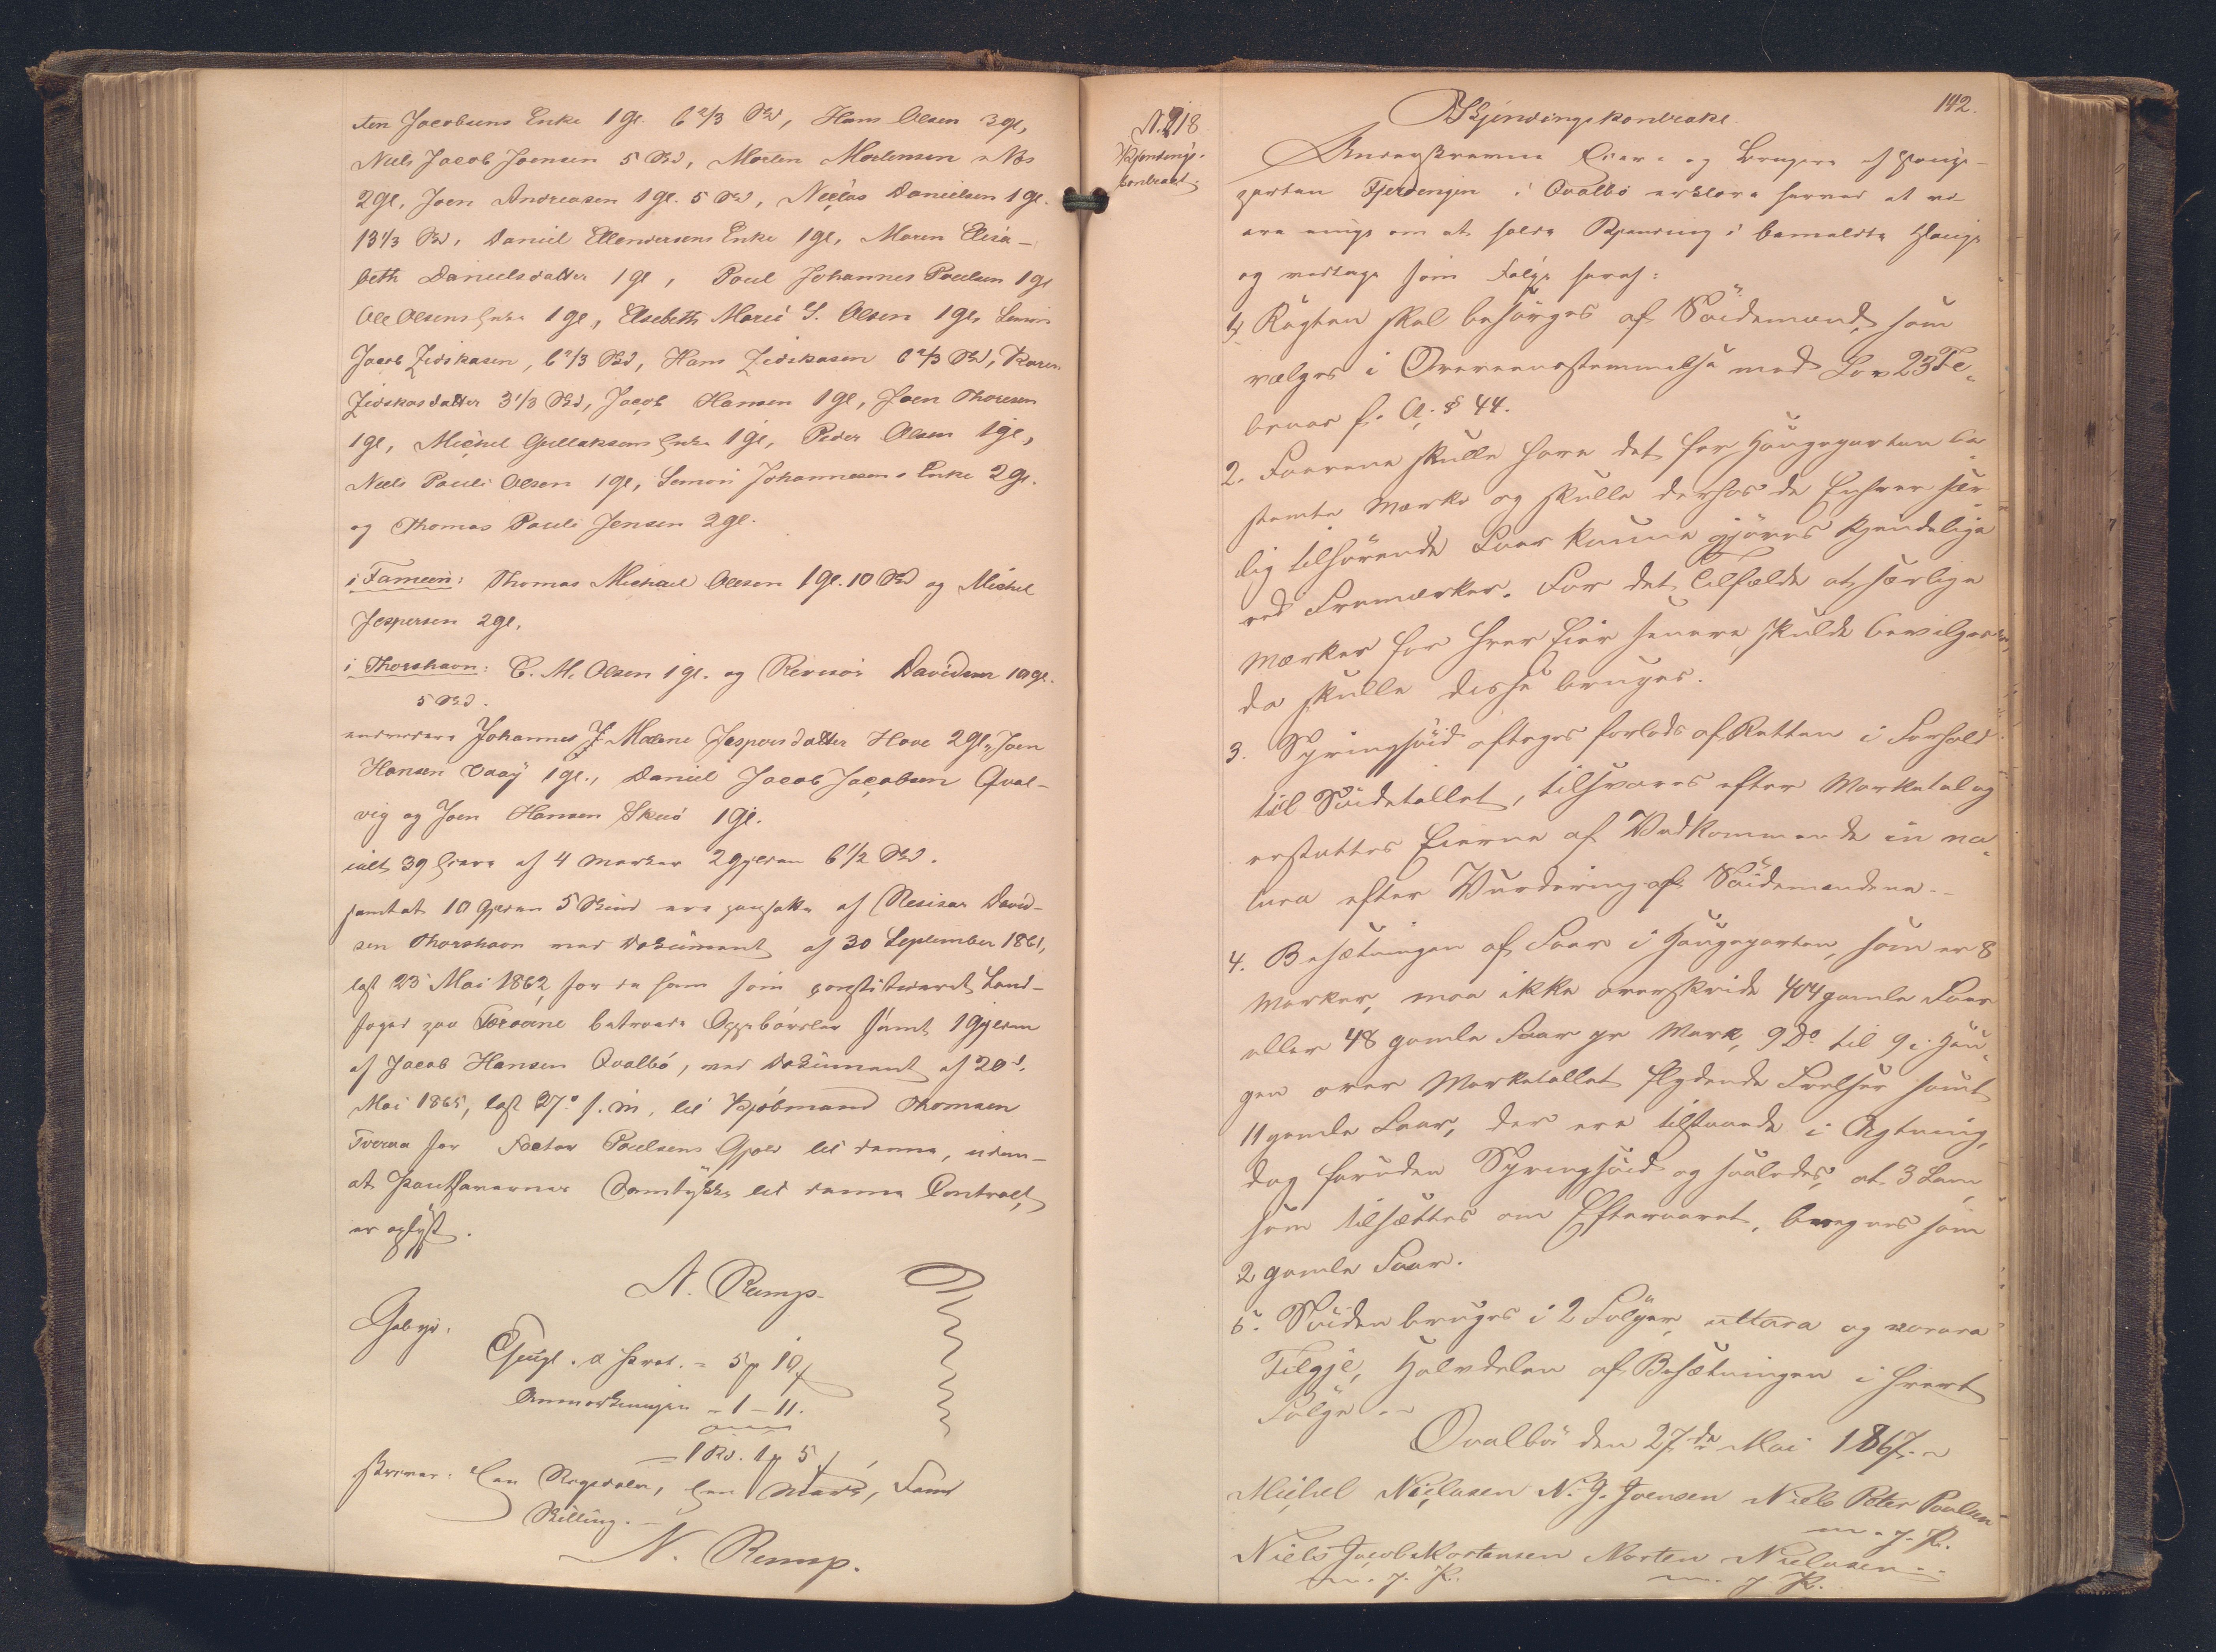 ten Jacobsens Enke 1 gl. 6 2/3 Skd, Hans Olsen 3 gl,
Niels Jacob Joensen 5 Skd, Morten Mortensen
2 gl, Joen Andreasen 1 gl. 5 Skd, Niclas Danielsen 1 gl.
13 1/3 Skd, Daniel Ellendersens Enke 1 gl, Maren Elisa-
beth Danielsdatter 1 gl, Poul Johannes Poulsen 1 gl
Ole Olsens Enke 1 gl, Elsebeth Marie S. Olsen 1 gl, Simon
Jacob Zidskasen, 6 2/3 Skd, Hans Zidskasen 6 2/3 Skd, Karen
Zidskasdatter 3 1/3 Skd, Jacob Hansen 1 gl, Joen Thoresen
1 gl, Michel Gullaksens Enke 1 gl, Peder Olsen 1 gl,
Niels Pauli Olsen 1 gl, Simon Johannesens Enke 2 gl.
og Thomas Pauli Jensen 2 gl.
i Famien: Thomas Michael Olesen 1 gl. 10 Skd og Michel
Jespersen 2 gl,
i Thorshavn: C. M. Olsen 1 gl. og Revisor Davidsen 10 gl.
5 Skd.
endvidere Johannes J. Malene Jespersdatter Hove 2 gl, Joen
Hansen Vaag 1 gl., Daniel Jacob Jacobsen Qval-
vig og Joen Hansen Skuø 1 gl.
ialt 39 Eiere af 4 Marker 2 Gylden 6 1/2 Skd.
samt at 10 Gylden 5 Skind ere pantsatte af Revisor David-
sen Thorshavn med Dokument af 30 September 1861,
læst 23 Mai 1862, for de ham som constitueret Land-
foged paa Færøerne betroede Oppebørsler samt 1 Gylden
af Jacob Hansen Qvalbø, med Dokument af 20d.
Mai 1865, læst 27.° s. M. til Kjøbmand Thomsen
Tveraa for Factor Poulsens Gjæld til denne, uden
at Panthavernes Samtykke til denne Contract
er oplyst.
N. Remp.
Gebyr.
Thingl. & Prot. = 5 p 10 f
Anmærkningen = 1 - 11.
= 1 Rd. 1 p 5 f
skriver: Een Rigsdaler, Een Mark, Fem
Skilling.
N. Remp.
N. 218.
Skjendings-
kontrakt.
142.
Skjendingskontrakt
Underskrevne Eiere og Brugere af Hauge-
parten Fjerdengen i Qvalbø erklære herved at vi
ere enige om at holde Skjending i bemeldte Hauge
og vedtage som Følge heraf:
1, Røgten skal besørges af Søidemænd, som
vælges i Overeensstemmelse med Lov 23 Fe-
bruar f. A. § 44.
2. Faarene skulle have det for Haugeparten be-
stemte Mærke og skulle derhos de Enhver sær-
lig tilhørende Faar kunne gjøres kjendelige
ved Fremærker. For det Tilfælde at særlige
Mærker for hver Eier senere skulde bevilges,
da skulle disse bruges.
3. Springsøid aftages forlods af Retten i Forhold
til Søidetallet, tilsvares efter Marketal og
erstattes Eierne af Vedkommende in na-
tura efter Vurdering af Søidemændene.
4. Besætningen af Faar i Haugeparten, som er 8
Marker, maa ikke overskride 404 gamle Faar
eller 48 gamle Faar pr Mark, 9 Do til 9 i Hau-
gen over Marketallet flydende Frelser samt
11 gamle Faar, der ere tilstaaede i Røgtning,
dog foruden Springsøid og saaledes, at 3 Lam,
som tilsættes om Efteraaret, beregnes som
2 gamle Faar.
5. Søiden bruges i 2 Følger, uttara og norara
Filgje, Halvdelen af Besætningen i hvert
Følge.
Qvalbø den 27de Mai 1867.
Michel Niclasen N. J. Joensen Niels Peter Poulsen
m. f. P.
Niels Jacob Mortensen Morten Nielasen
m. f. P. m. f. P.